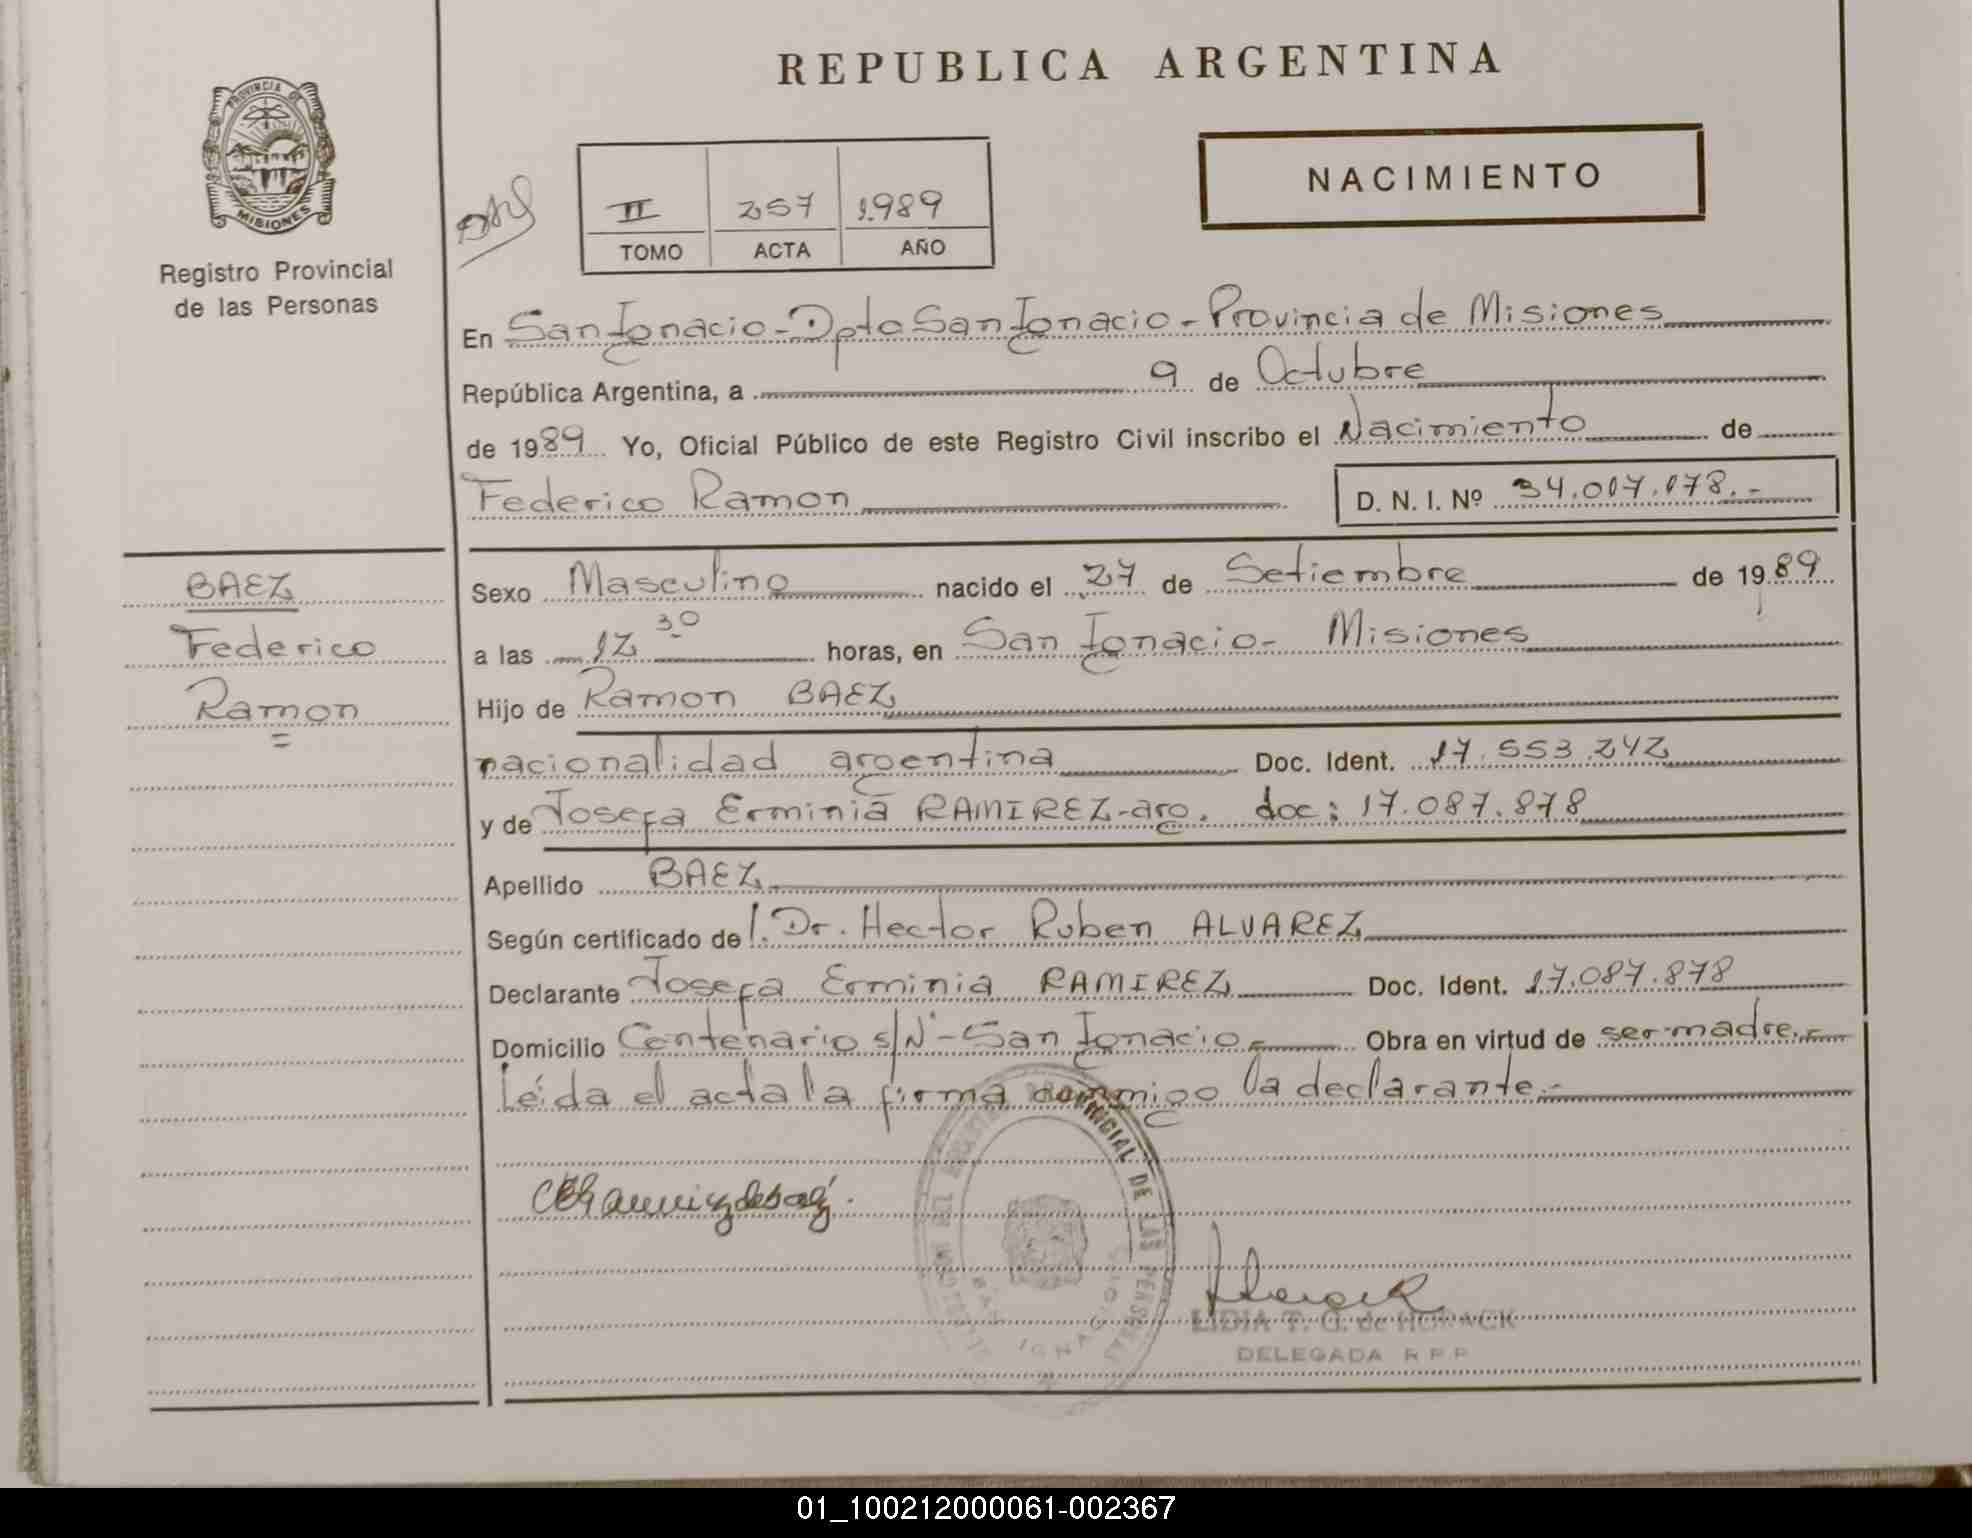 REPUBLICA ARGENTINA
PROVINCIA DE
MISIONES
Registro Provincial
de las Personas
II 257 1.989
TOMO ACTA AÑO
NACIMIENTO
En San Ignacio - Dpto San Ignacio - Provincia de Misiones
República Argentina, a 9 de Octubre
de 1989 Yo, Oficial Público de este Registro Civil inscribo el Nacimiento de
Federico Ramon D. N. I. Nº 34.017.178.-
BAEZ
Federico
Ramon
Sexo Masculino nacido el 27 de Setiembre de 1989
a las 12 30 horas, en San Ignacio - Misiones
Hijo de Ramon BAEZ
nacionalidad argentina Doc. Ident. 17.553.242
y de Josefa Erminia RAMIREZ - arg. doc: 17.087.878
Apellido BAEZ
Según certificado de l. Dr. Hector Ruben ALVAREZ
Declarante Josefa Erminia RAMIREZ Doc. Ident. 17.087.878
Domicilio Centenario s/Nº - San Ignacio - Obra en virtud de ser madre.-
Leída el acta la firma conmigo la declarante.-
PROVINCIAL DE LAS PERSONAS
IGNACIO
LIDIA T. G. de HORACK
DELEGADA R.P.P.
01_100212000061-002367